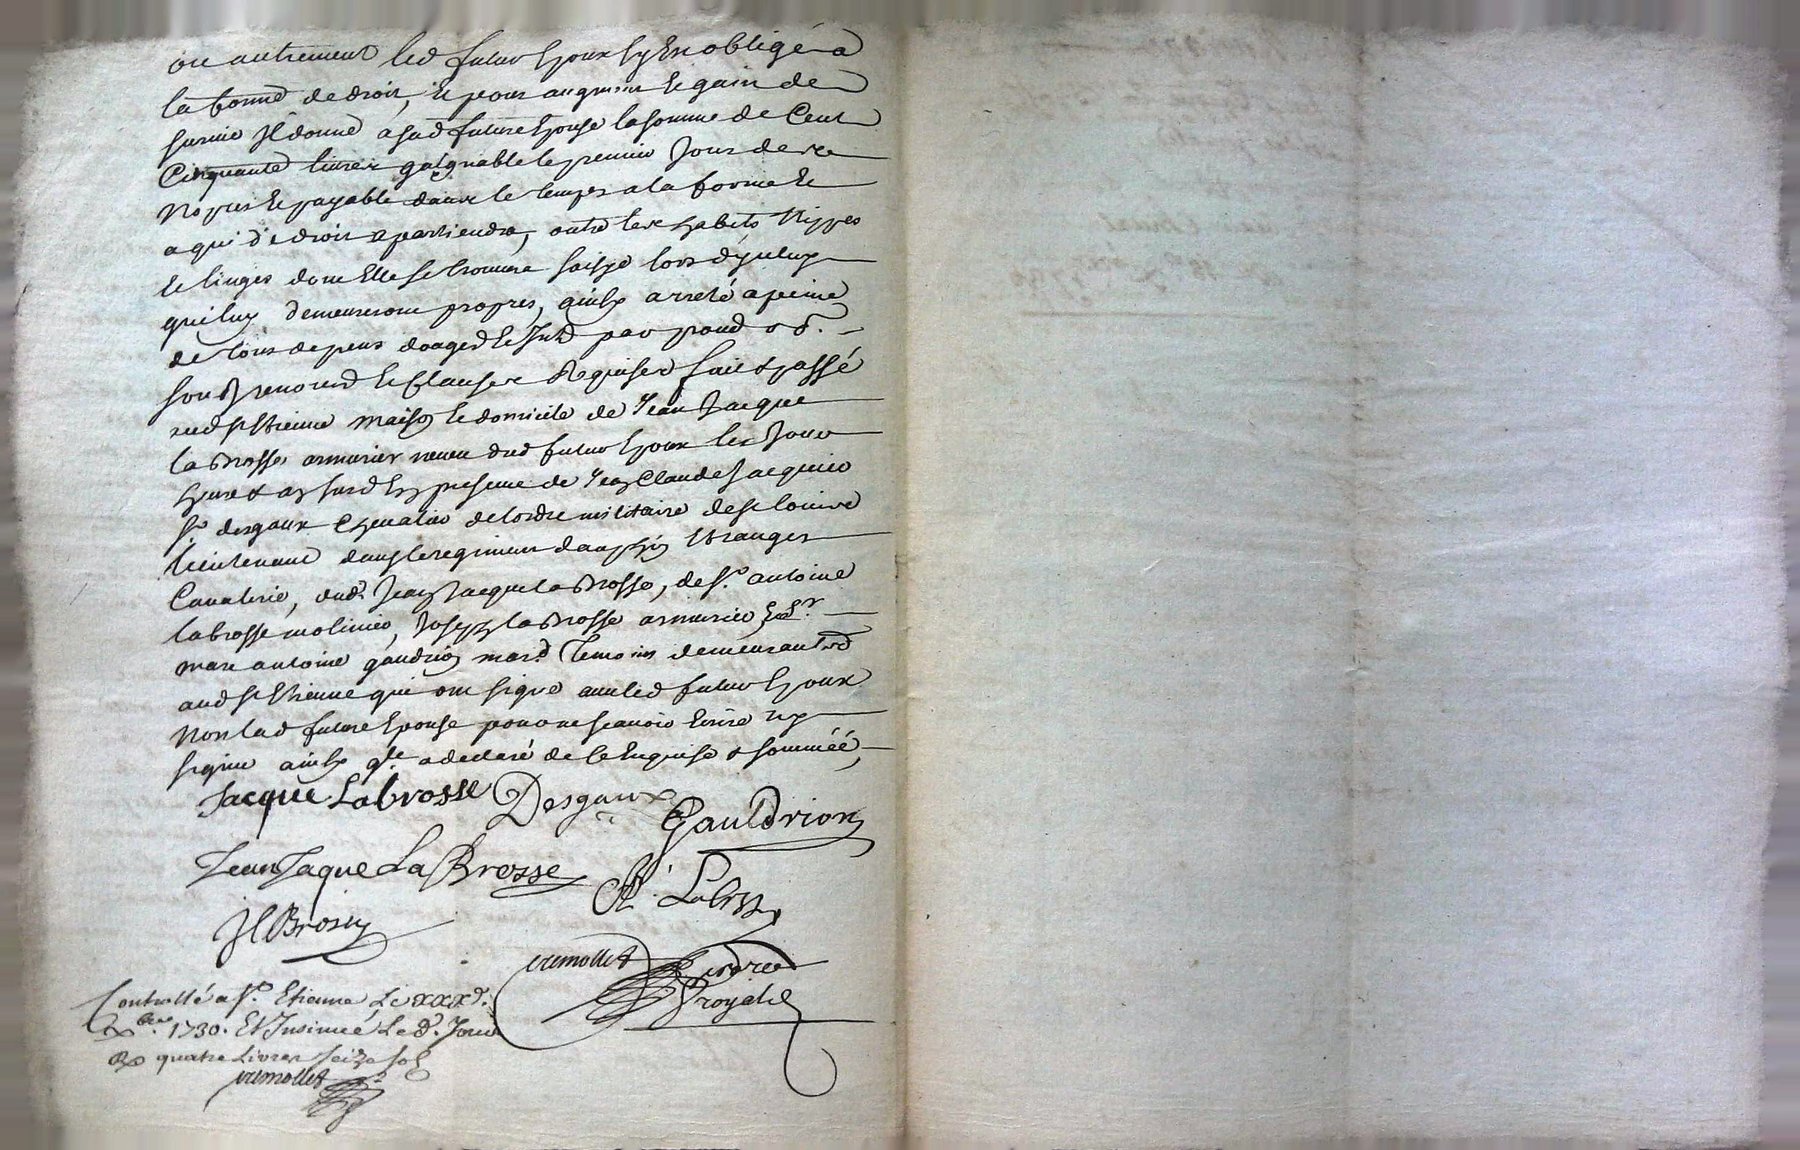 ou autrement led futur Epoux sy Est obligé a
la forme de droit, Et pour augment Et gain de
survie Il donne a sad future Epouse la somme de Cent
Cinquante livres gaignable le premier Jour de
Nopces Et payable dans le temps a la forme Et
a qui de droit apartiendra, outre les habits Nippes
Et linges dont Elle se trouvera saisye lors d'yceluy
qui luy demeureront propres, ainsy arreté a peine
de tous depens
sous Et renoncé Et Clauses Requises fait & passé
aud St Etienne maison Et domicile de Jean Jacque
la Brosse armurier neveu dud futur Epoux les Jour
en presence de Jean Claude Jacquier
Sr desgaux Chevalier de lordre militaire de st Louis
lieutenant dans le regiment dauphin Etranger
Cavalerie, dud Jean Jacque la Brosse, de Sr antoine
labrosse molinier, Joseph la Brosse armurier, & Sr
marc antoine gaudrion mard Temoins demeurant
aud St Etienne qui ont signé avec led futur Epoux
Non lad future Epouse pour ne scavoir Ecrire ny
signer ainsy qlle a declaré de ce Enquise & sommée,
Jacque Labrosse Desgaux Gauldrion
Jean Jaque La Brosse
A. Labrosse
JLBrosse
Controllé a St. Etienne Le xxxe.
Xbre. 1730. Et Insinué Le d. Jour
quatre Livres seize sols